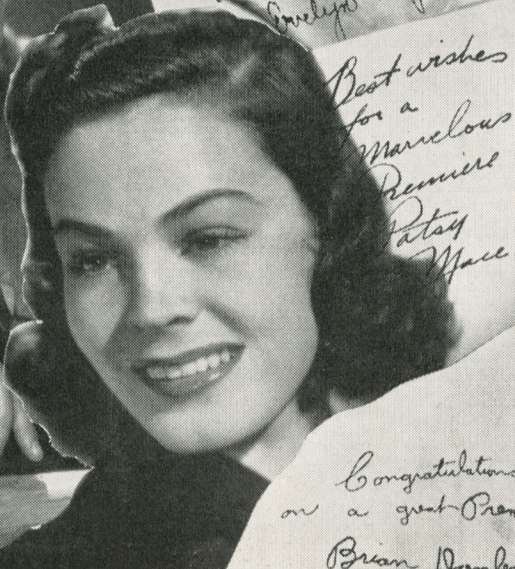 Evelyn
Best wishes
for a
Marvelous
Premiere
Patsy
Mace
Congratulations
on a great
Brian